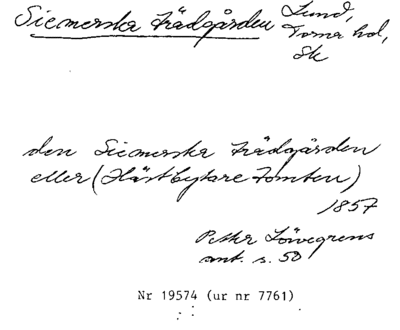 Siemerska trädgården Lund,
Torna hd,
Sk
den Siemerska trädgården
eller (Hästbytare tomten)
1857
Petter Löwegrens
ant. s. 50
Nr 19574 (ur nr 7761)